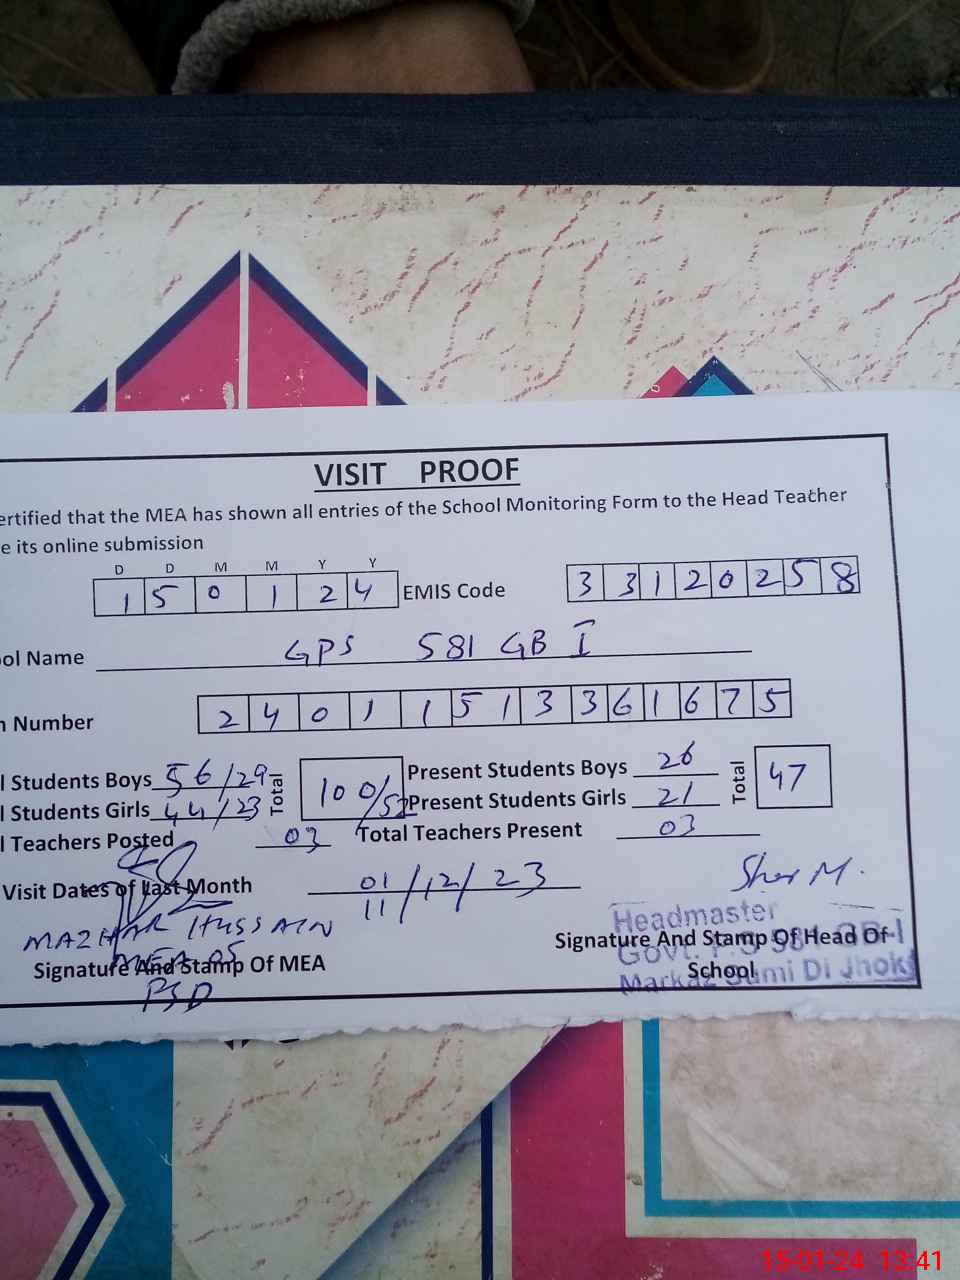 VISIT PROOF
ertified that the MEA has shown all entries of the School Monitoring Form to the Head Teacher
e its online submission
D D M M Y Y
1 5 0 1 2 4 EMIS Code 3 3 1 2 0 2 5 8
ol Name GPS 581 GB I
n Number 2 4 0 1 1 5 1 3 3 6 1 6 7 5
l Students Boys 56/29 Total 100/52 Present Students Boys 26 Total 47
l Students Girls 44/23 Present Students Girls 21
l Teachers Posted 03 Total Teachers Present 03
Visit Dates of Last Month 01/12/23
11
Sher M.
MAZHAR HUSSAIN
MEA 05
PSD
Signature And Stamp Of MEA
Headmaster
Govt. P.S 581 GB-I
Markaz Sumi Di Jhok
Signature And Stamp Of Head Of
School
15-01-24 13:41